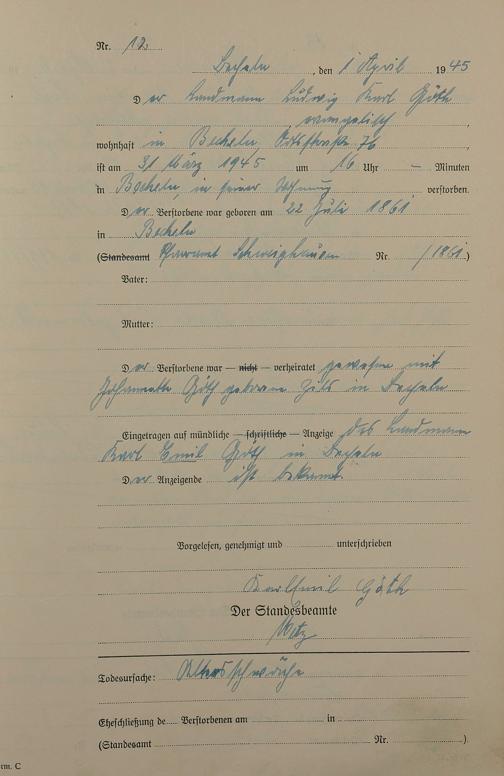 Nr. 12.
Becheln, den 1 April 1945
Der Landmann Ludwig Karl Göth
evangelisch
wohnhaft in Becheln, Ortsstraße 76
ist am 31 März 1945 um 16 Uhr – Minuten
in Becheln, in seiner Wohnung verstorben.
Der Verstorbene war geboren am 22 Juli 1861
in Becheln
(Standesamt Pfarramt Schweighausen Nr. /1861)
Vater:
Mutter:
Der Verstorbene war — nicht — verheiratet gewesen mit
Göth geborene in Becheln
Eingetragen auf mündliche — schriftliche — Anzeige des Landmann
Karl Emil Göth in Becheln
Der Anzeigende ist bekannt.
Vorgelesen, genehmigt und unterschrieben
Karl Emil Göth
Der Standesbeamte
Todesursache: Altersschwäche
Eheschließung de Verstorbenen am in
(Standesamt Nr. ).
rm. C